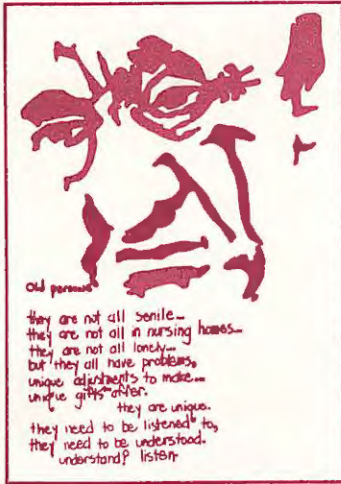 Old persons
they are not all senile...
they are not all in nursing homes...
they are not all lonely...
but they all have problems,
unique adjustments to make...
unique gifts offer.
they are unique.
they need to be listened to,
they need to be understood.
understand? listen